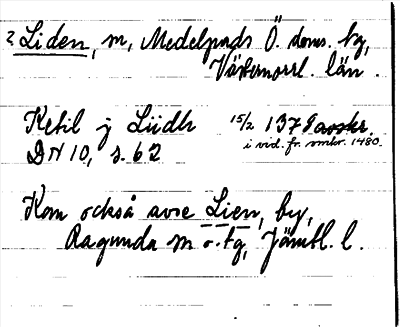 2 Liden, m, Medelpads Ö. doms. tg,
Västernorrl. län.
Ketil j Liidh 15/2 1378 avskr.
i vid. fr. omkr. 1480.
DN 10, s. 62
Kom också avse Lien, by,
Ragunda m o. tg, Jämtl. l.